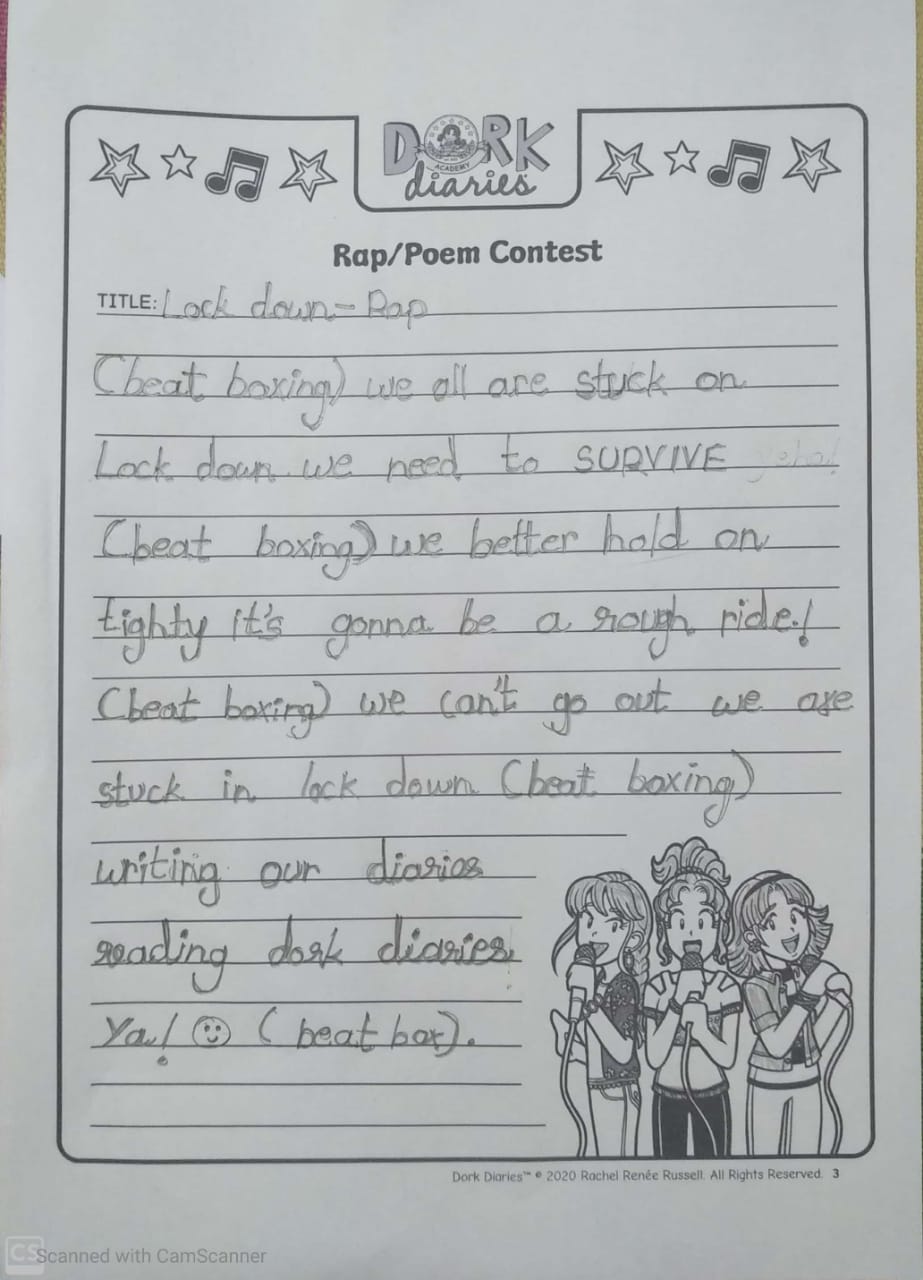 DORK
ACADEMY
diaries
Rap/Poem Contest
TITLE: Lock down - Rap
(beat boxing) we all are stuck on
Lock down we need to SURVIVE
(beat boxing) we better hold on
tighty it's gonna be a rough ride!
(beat boxing) we can't go out we are
stuck in lock down (beat boxing)
writing our diaries
reading dork diaries
Ya! ☺ (beat box).
Dork Diaries™ © 2020 Rachel Renée Russell. All Rights Reserved. 3
CS Scanned with CamScanner